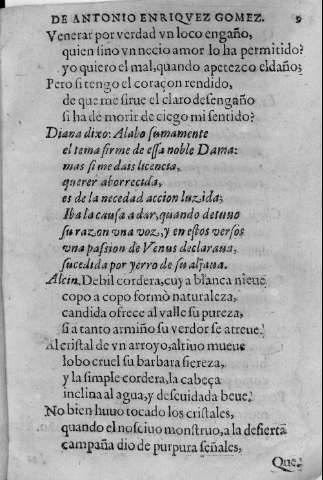 DE ANTONIO ENRIQVEZ GOMEZ. 9
Venerar por verdad vn loco engaño,
quien sino vn necio amor lo ha permitido?
yo quiero el mal, quando apetezco el daño;
Pero si tengo el coraçon rendido,
de que me sirue el claro desengaño
si ha de morir de ciego mi sentido?
Diana dixo: Alabo sumamente
el tema firme de essa noble Dama:
mas si me dais licencia,
querer aborrecida,
es de la necedad accion luzida;
Iba la causa a dar, quando detuuo
su razon vna voz, y en estos versos
vna passion de Venus declaraua,
sucedida por yerro de su aljaua.
Alcin. Debil cordera, cuya blanca nieue
copo a copo formò naturaleza,
candida ofrece al valle su pureza,
si a tanto armiño su verdor se atreue.
Al cristal de vn arroyo, altiuo mueue
lobo cruel su barbara fiereza,
y la simple cordera, la cabeça
inclina al agua, y descuidada beue.
No bien huuo tocado los cristales,
quando el nosciuo monstruo, a la desierta
campaña dio de purpura señales,
Que